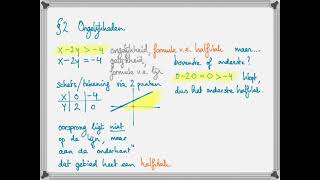 §2 Ongelijkheden
x-2y > -4 ongelijkheid, formule v.e. halfvlak
x-2y = -4 gelijkheid,
formule v.e. lijn
schets/tekening via 2 punten
x | 0 | -4
y | 2 | 0
oorsprong ligt niet
op de lijn, maar
aan de onderkant
dat gebied heet een halfvlak
maar...
bovenste of onderste?
0-2·0=0 > -4 klopt,
dus het onderste halfvlak.